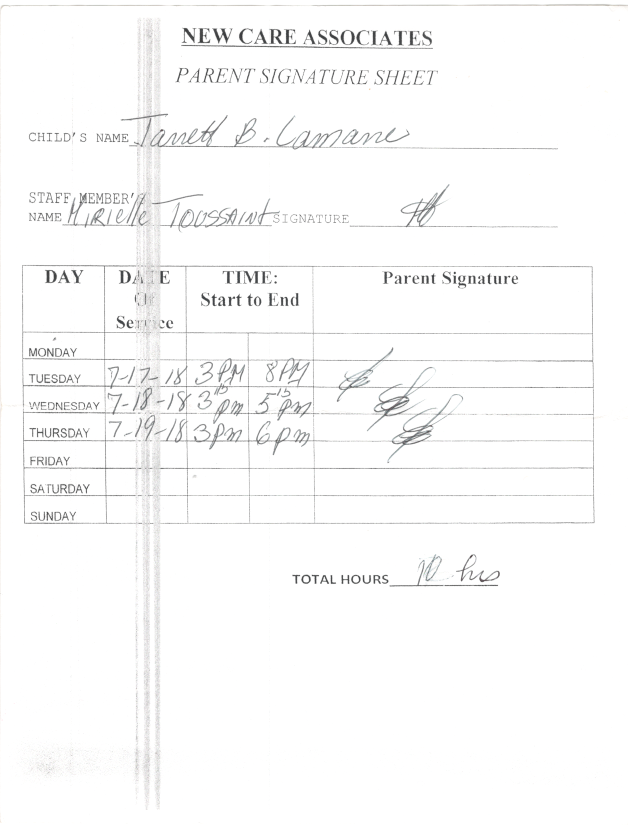 NEW CARE ASSOCIATES
PARENT SIGNATURE SHEET
CHILD'S NAME Jarrett B. Lamarre
STAFF MEMBER'S
NAME Mirielle Toussaint SIGNATURE
DAY DATE Of Service TIME: Start to End Parent Signature
MONDAY
TUESDAY 7-17-18 3PM 8PM
WEDNESDAY 7-18-18 3 15 pm 5 15 pm
THURSDAY 7-19-18 3pm 6pm
FRIDAY
SATURDAY
SUNDAY
TOTAL HOURS 10 hrs